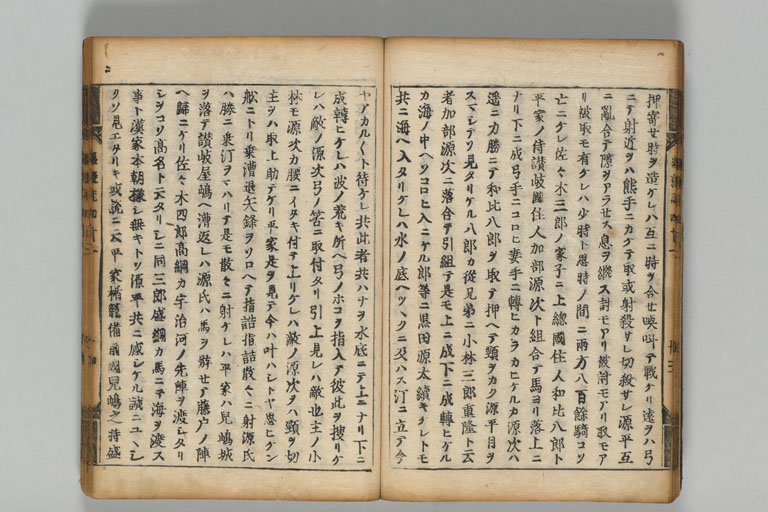 押寄セ時ヲ造ケレハ互ニ時ヲ合セ喚叫テ戰ケリ遠ヲハ弓
ニテ射近ヲハ熊手ニカケテ取或射殺サレ切殺サレ源平互
ニ亂合テ隙ヲアラセス息ヲ繼ス討モアリ被討モアリ取モア
リ被取モ有ケレハ少時ト思時ノ間ニ兩方八百餘騎コソ
亡ニケレ佐々木三郎ノ家子ニ上總國住人和比八郎ト
平家ノ侍讃岐國住人加部源次ト組合テ馬ヨリ落上ニ
ナリ下ニ成弓手ニコロヒ妻手ニ轉ヒカラカヒケルカ源次ハ
遥ニ力勝ニテ和比八郎ヲ取テ押ヘテ頸ヲカク源平目ヲ
スマシテソ見タリケル八郎カ從兄弟ニ小林三郎重隆ト云
者加部源次ニ落合テ引組テ是モ上ニ成下ニ成轉ヒケル
カ海ノ中ヘソコロヒ入ニケル郎等ニ黒田源太續キケレトモ
共ニ海ヘ入タリケレハ水ノ底ヘツヽクニ及ハス汀ニ立テ今
ヤアカルヽト待ケレ共此者共ハナヲ水底ニテ上ニナリ下ニ
成轉ヒケレハ波ノ荒キ所ヘ弓ノホコヲ指入テ彼此ヲ捜リケ
レハ敵ノ源次弓ノ筈ニ取付タリ引上見レハ敵也主ノ小
林モ源次カ腰ニイタキ付テ上リケレハ敵ノ源次ヲハ頸ヲ切
主ヲハ取上助テケリ平家是ヲ見テ今ハ叶ハシトヤ思ヒケン
舩ニトリ乗漕退矢鋒ヲソロヘテ指詰指詰散々ニ射源氏
ハ勝ニ乗汀ヲマハリテ是モ散々ニ射ケレハ平家ハ兒嶋城
ヲ落テ讃岐屋嶋ヘ漕返レハ源氏ハ馬ヲ游セテ藤戸ノ陣
ヘ歸ニケリ佐々木四郎高綱カ宇治河ノ先陣ヲ渡シタリ
シヲコソ高名ト云タリシニ同三郎盛綱カ馬ニテ海ヲ渡ス
事ト漢家本朝様シ無キトソ源平共ニ感シケル誠ニユヽシ
クソ見エタリキ或説ニ云平家楯籠備前國兒嶋之時盛